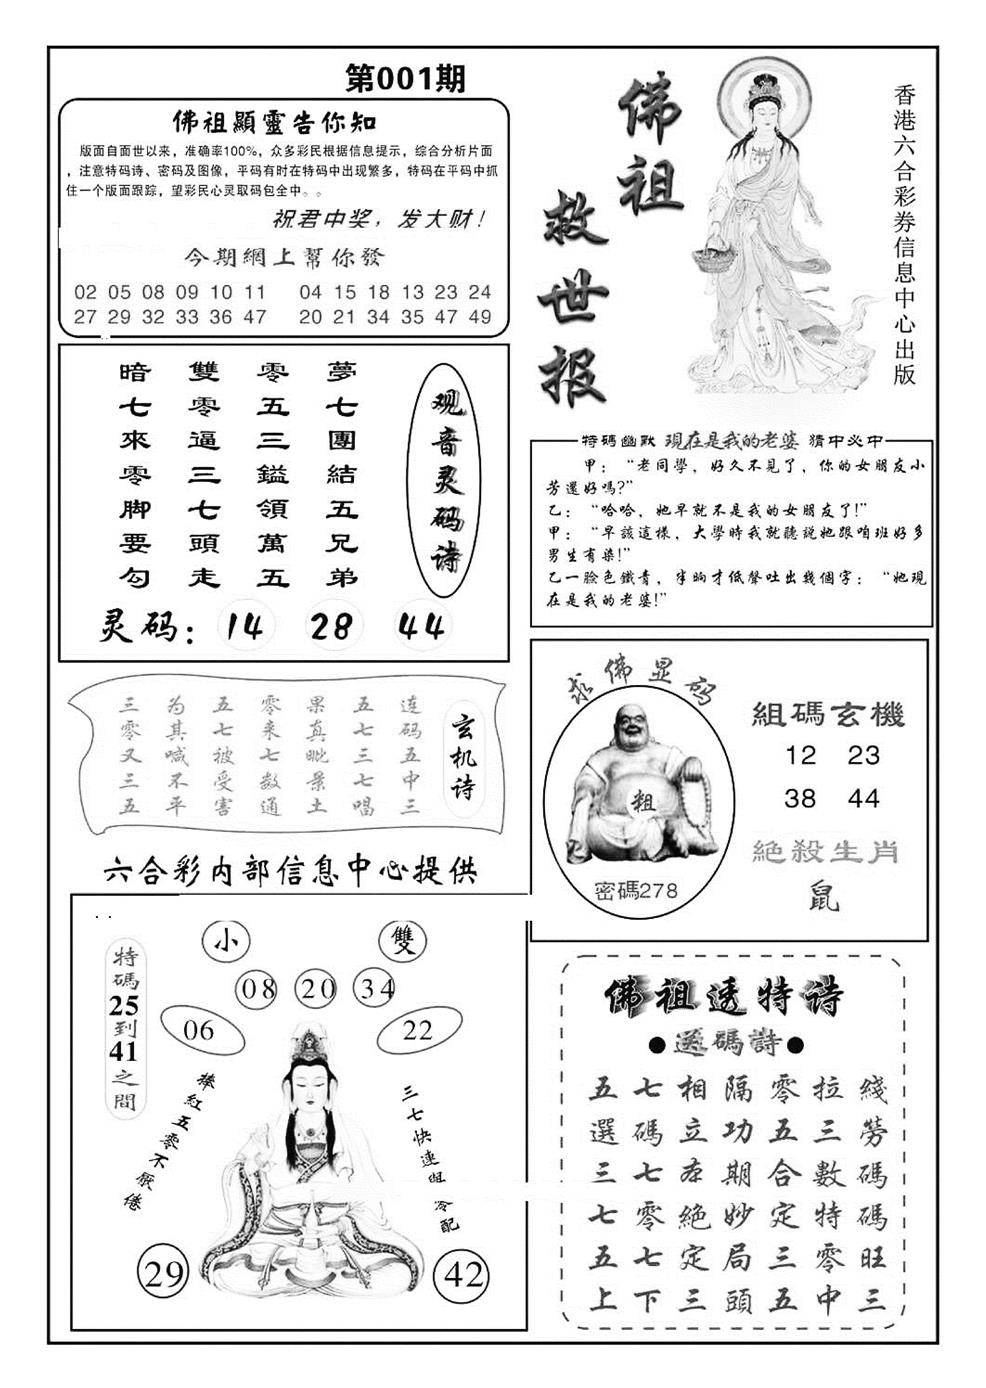 第001期
佛祖顯靈告你知
版面自面世以来，准确率100%，众多彩民根据信息提示，综合分析片面
，注意特码诗、密码及图像，平码有时在特码中出现繁多，特码在平码中抓
住一个版面跟踪，望彩民心灵取码包全中。。
祝君中奖，发大财！
今期網上幫你發
02 05 08 09 10 11 04 15 18 13 23 24
27 29 32 33 36 47 20 21 34 35 47 49
佛祖
救世报
香港六合彩券信息中心出版
观音灵码诗
夢七團結五兄弟
零五三鎰領萬五
雙零逼三七頭走
暗七來零脚要勾
灵码：14 28 44
特碼幽默 現在是我的老婆 猜中必中
甲：“老同學，好久不見了，你的女朋友小
芳還好嗎?”
乙：“哈哈，她早就不是我的女朋友了!”
甲：“早該這樣，大學時我就聽説她跟咱班好多
男生有染!”
乙一脸色鐵青，半晌才低聲吐出幾個字：“她現
在是我的老婆!”
玄机诗
连码五中三
五七三七唱
果真毗景土
零来七数通
五七被受害
为其喊不平
三零又三五
求佛显码
粗
密碼278
組碼玄機
12 23
38 44
絕殺生肖
鼠
六合彩内部信息中心提供
特碼25到41之間
小
雙
08 20 34
06
22
捧紅五零不厭倦
三七快連與零配
29
42
佛祖透特诗
●送碼詩●
五七相隔零拉綫
選碼立功五三勞
三七本期合數碼
七零絶妙定特碼
五七定局三零旺
上下三頭五中三